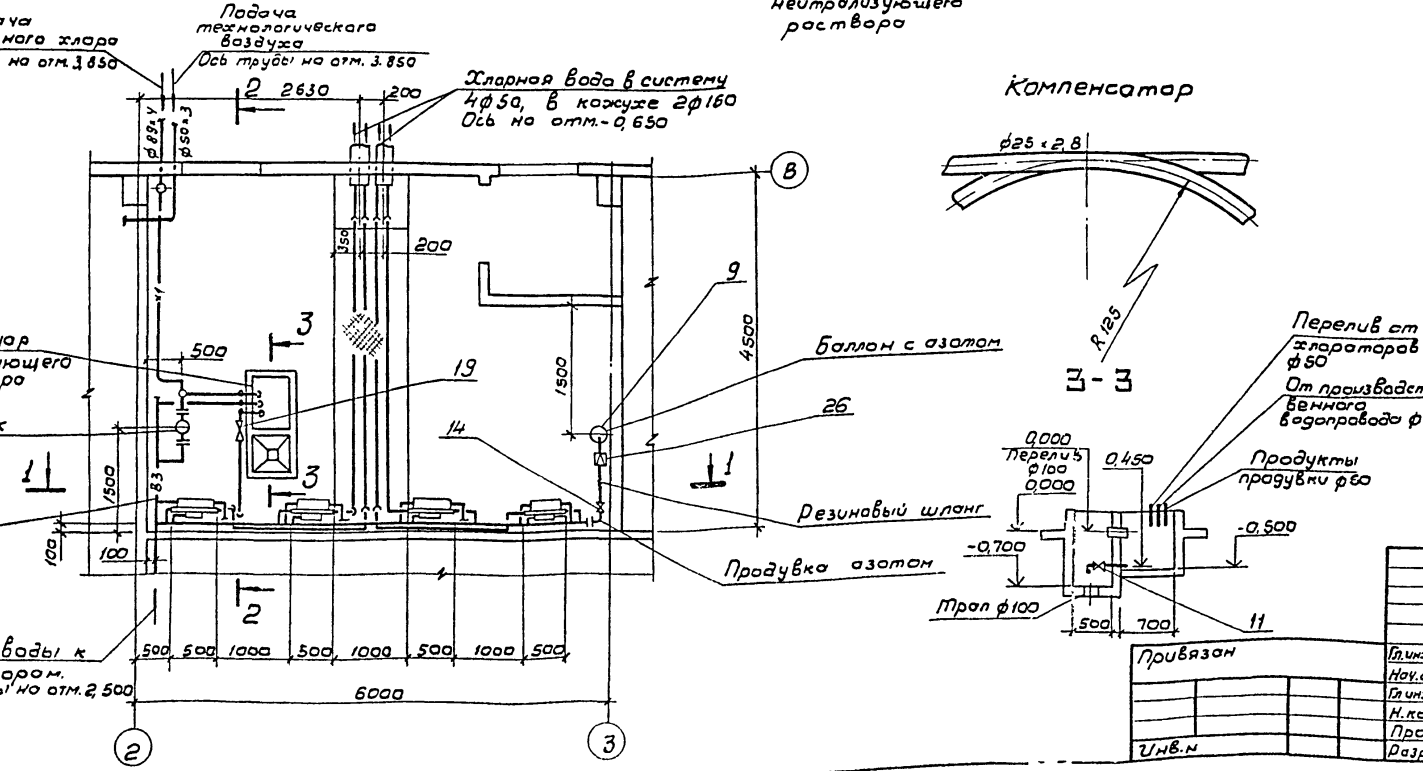 нейтрализующего
раствора
Подача
технологического
воздуха
Ось трубы на отм. 3.850
ного хлора
на отм. 3,850
2
2630
200
Хлорная вода в систему
4ф50, в кожухе 2ф160
Ось на отм.-0,650
ф89×4
ф50×3
Компенсатор
ф25×2,8
R125
В
350
200
4500
9
1500
500
3
19
Баллон с азотом
26
14
1
1
1500
В3
3
Резиновый шланг
100
100
Продувка азотом
2
воды к
на отм. 2,500
500
500
1000
500
1000
500
1000
500
6000
2
3
3-3
Перелив от
хлораторов
ф50
От производст
венного
водопровода ф
Продукты
продувки ф50
0,000
Перелив
ф100
0,000
0,450
-0,500
-0,700
Трап ф100
500
700
11
Привязан
Инв.н
Гл.инж
Нач.о
Гл.инж
Н.ко
Про
Разр